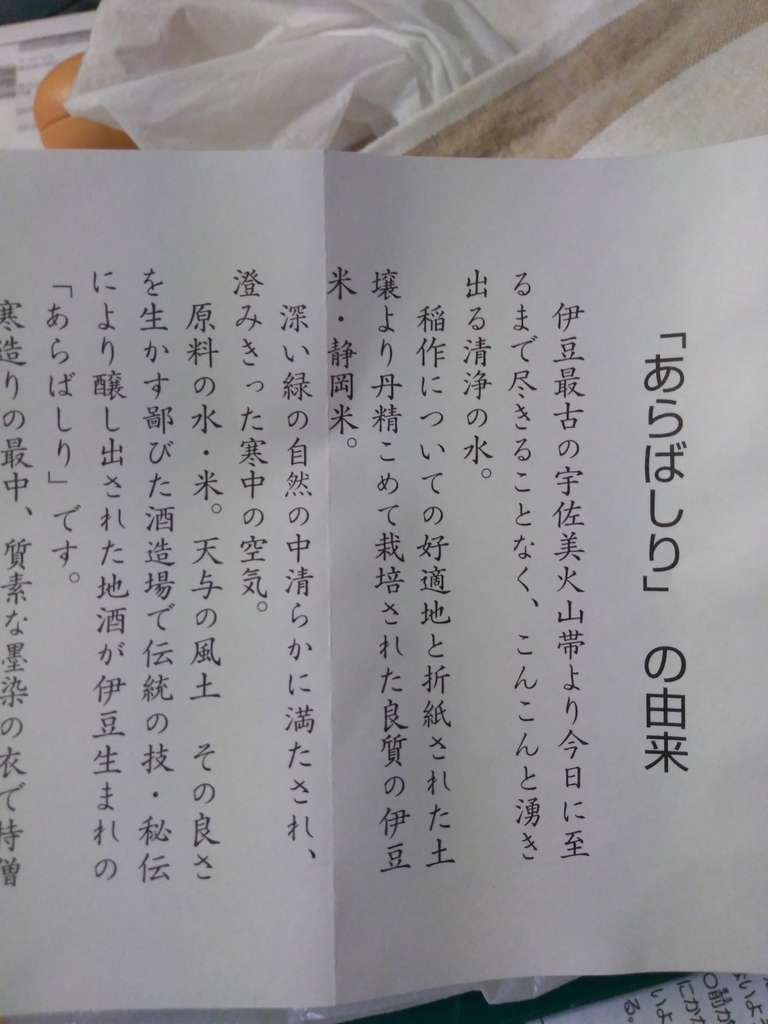 「あらばしり」の由来
伊豆最古の宇佐美火山帯より今日に至
るまで尽きることなく、こんこんと湧き
出る清浄の水。
稲作についての好適地と折紙された土
壌より丹精こめて栽培された良質の伊豆
米・静岡米。
深い緑の自然の中清らかに満たされ、
澄みきった寒中の空気。
原料の水・米。天与の風土　その良さ
を生かす鄙びた酒造場で伝統の技・秘伝
により醸し出された地酒が伊豆生まれの
「あらばしり」です。
寒造りの最中、質素な墨染の衣で侍僧